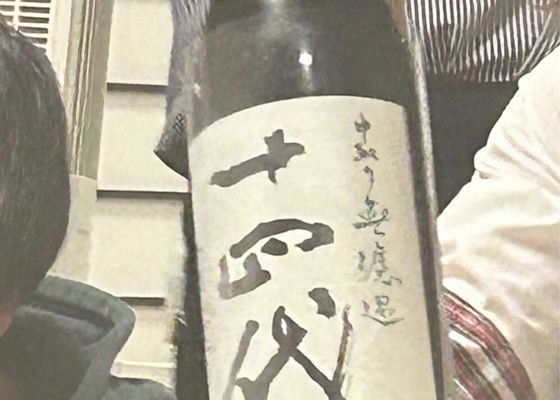 十四代
中取り無濾過